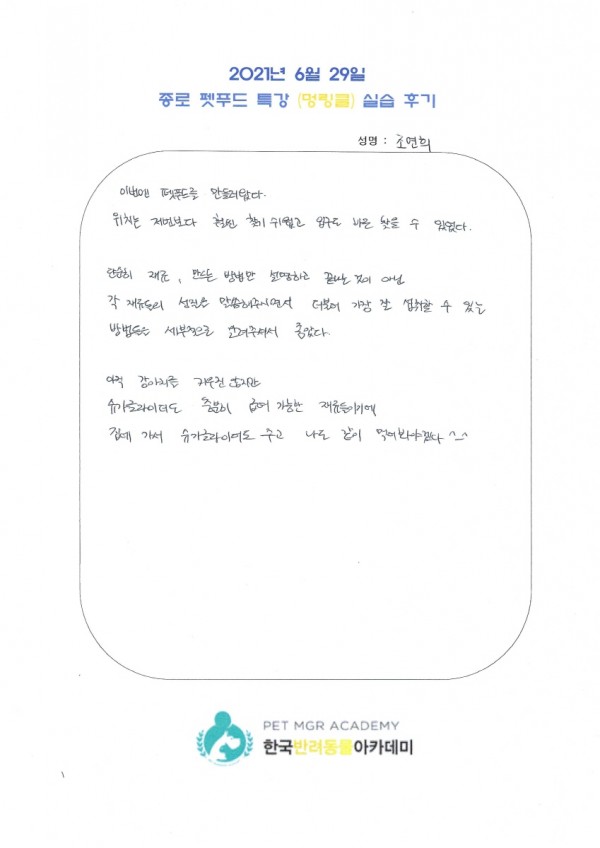 2021년 6월 29일
종로 펫푸드 특강 (멍링클) 실습 후기
성명 : 조연희
이번엔 펫푸드를 만들러왔다.
위치는 저번보다 훨씬 찾기 쉬웠고 입구도 바로 찾을 수 있었다.
단순히 재료, 만드는 방법만 설명하고 끝나는 것이 아닌
각 재료들의 성분을 말씀해주시면서 더불어 가장 잘 섭취할 수 있는
방법들을 세부적으로 알려주셔서 좋았다.
아직 강아지를 키우진 않지만
슈가글라이더도 충분히 급여 가능한 재료들이기에
집에 가서 슈가글라이더도 주고 나도 같이 먹어봐야겠다 ^-^
PET MGR ACADEMY
한국반려동물아카데미